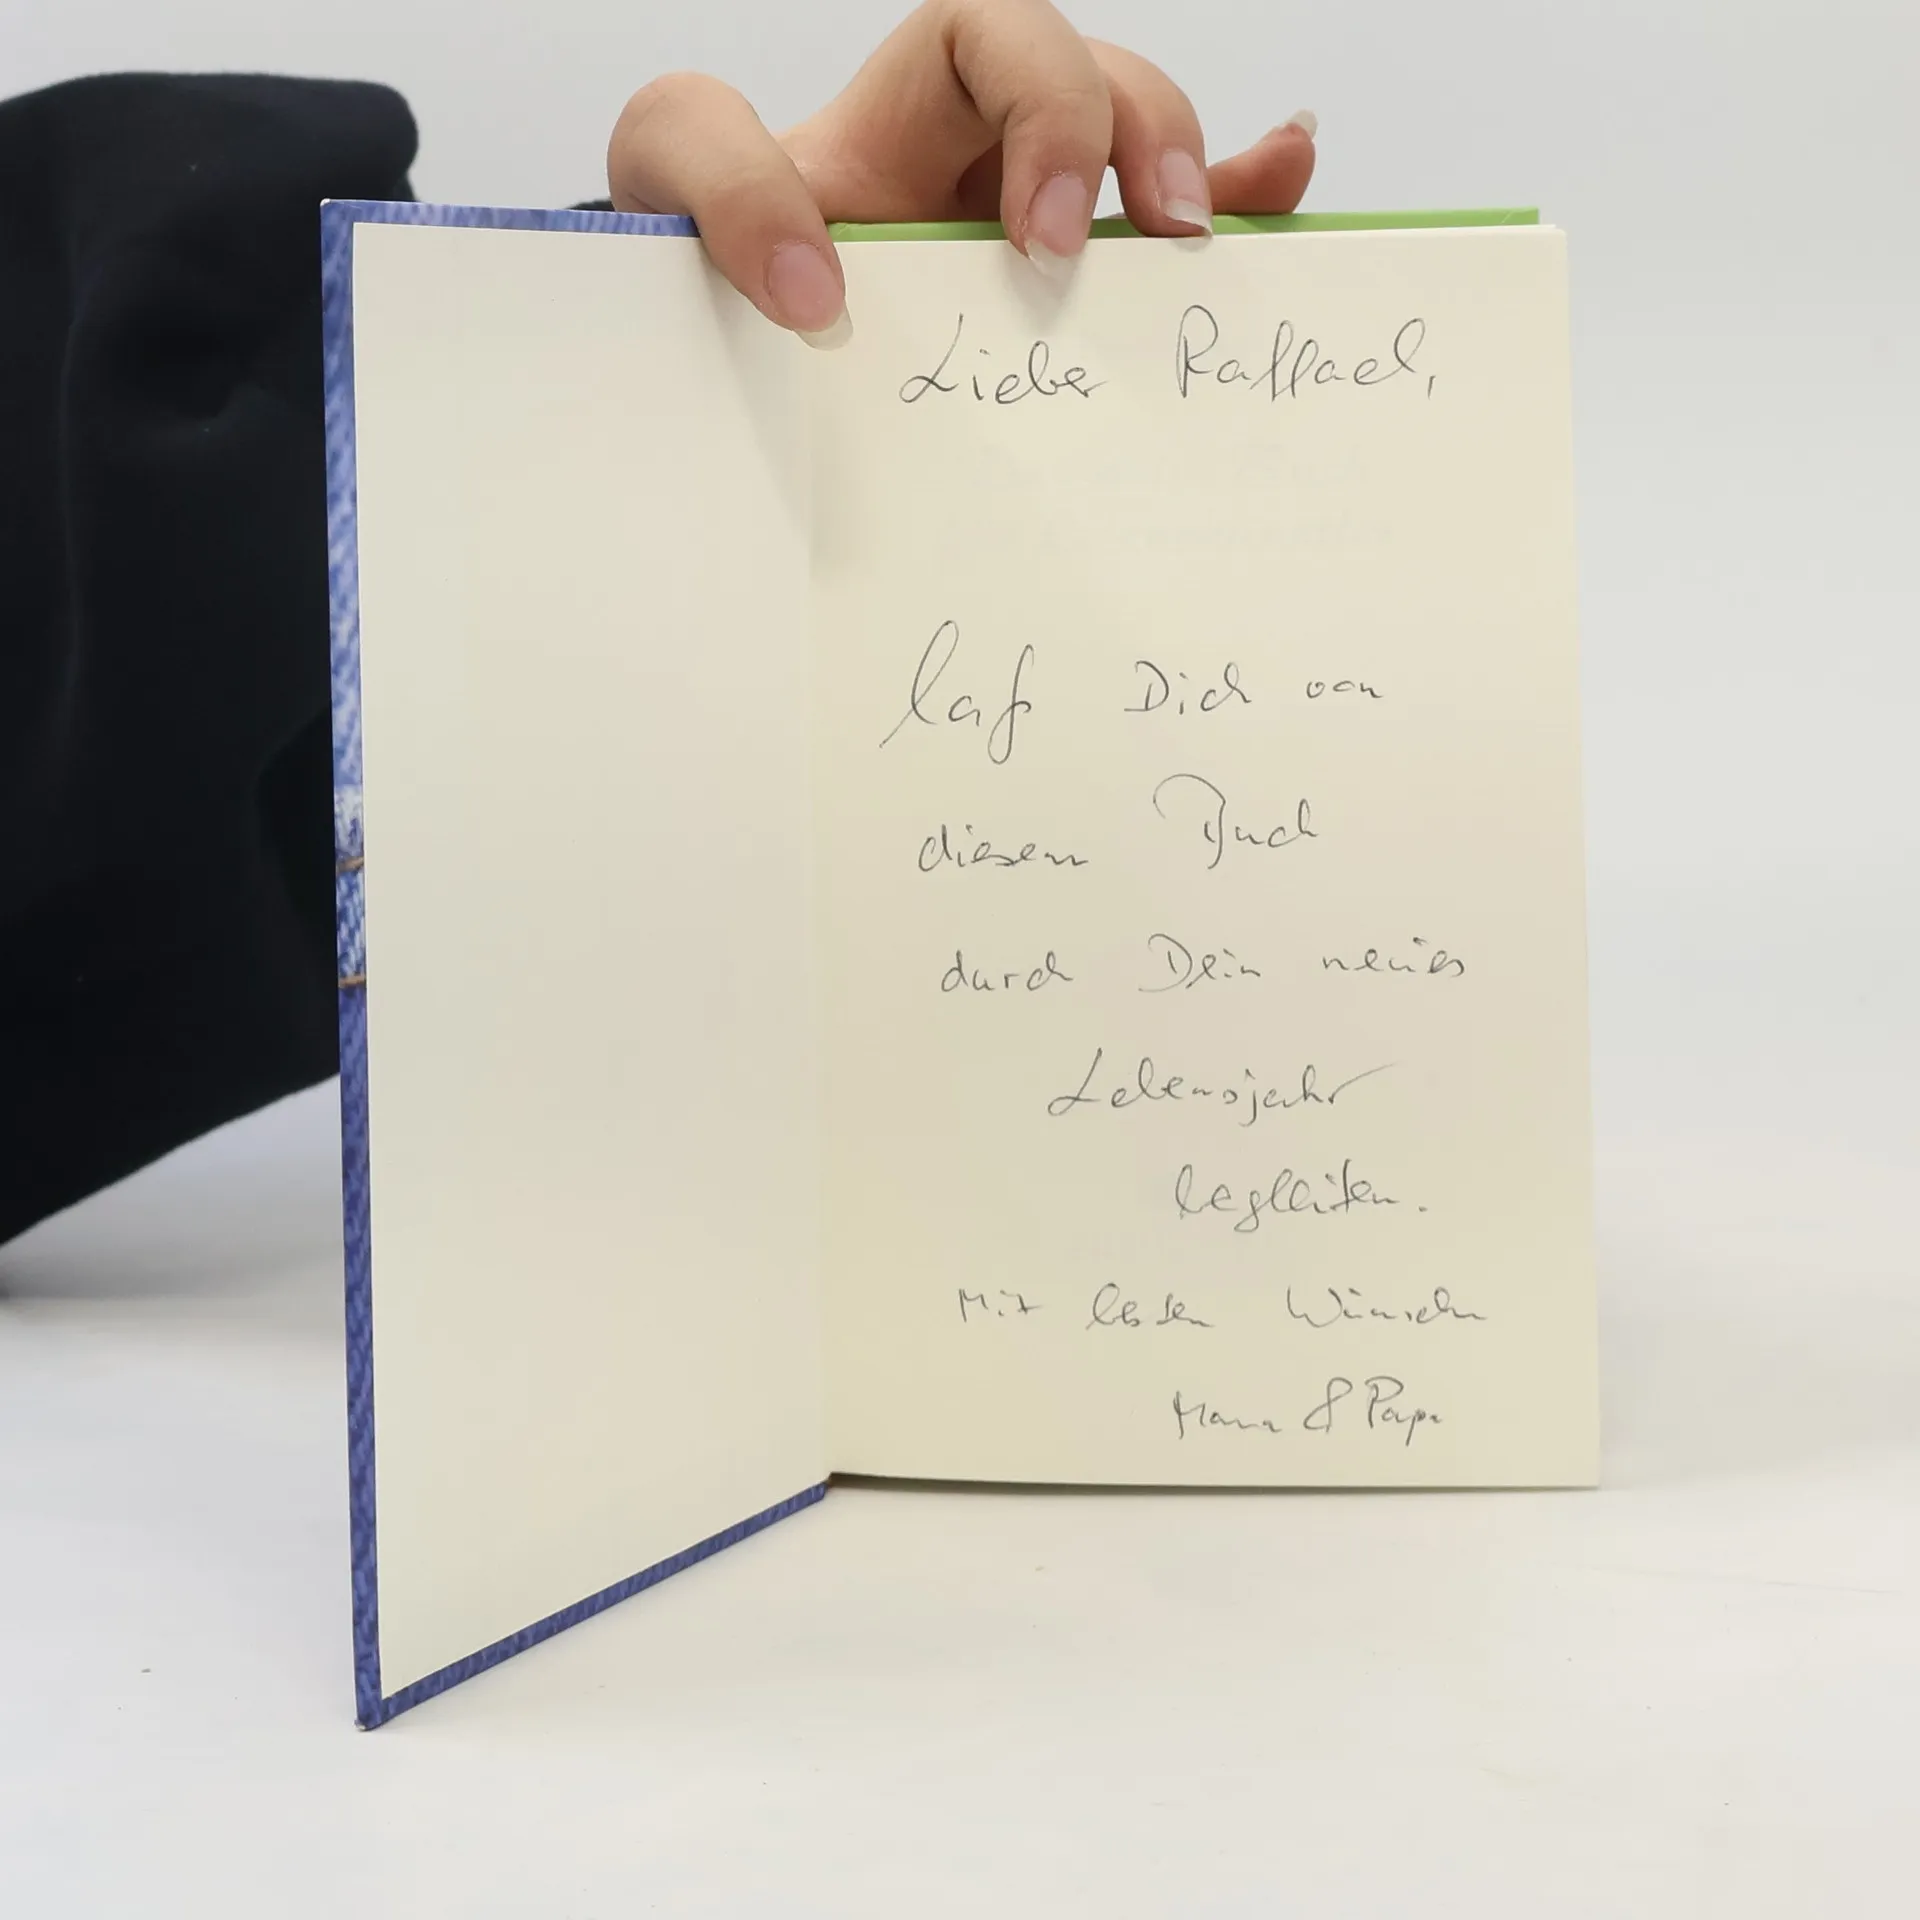 Lieber Raffael,
laß Dich von
diesem Buch
durch Dein neues
Lebensjahr
begleiten.
Mit besten Wünschen
Mama & Papa